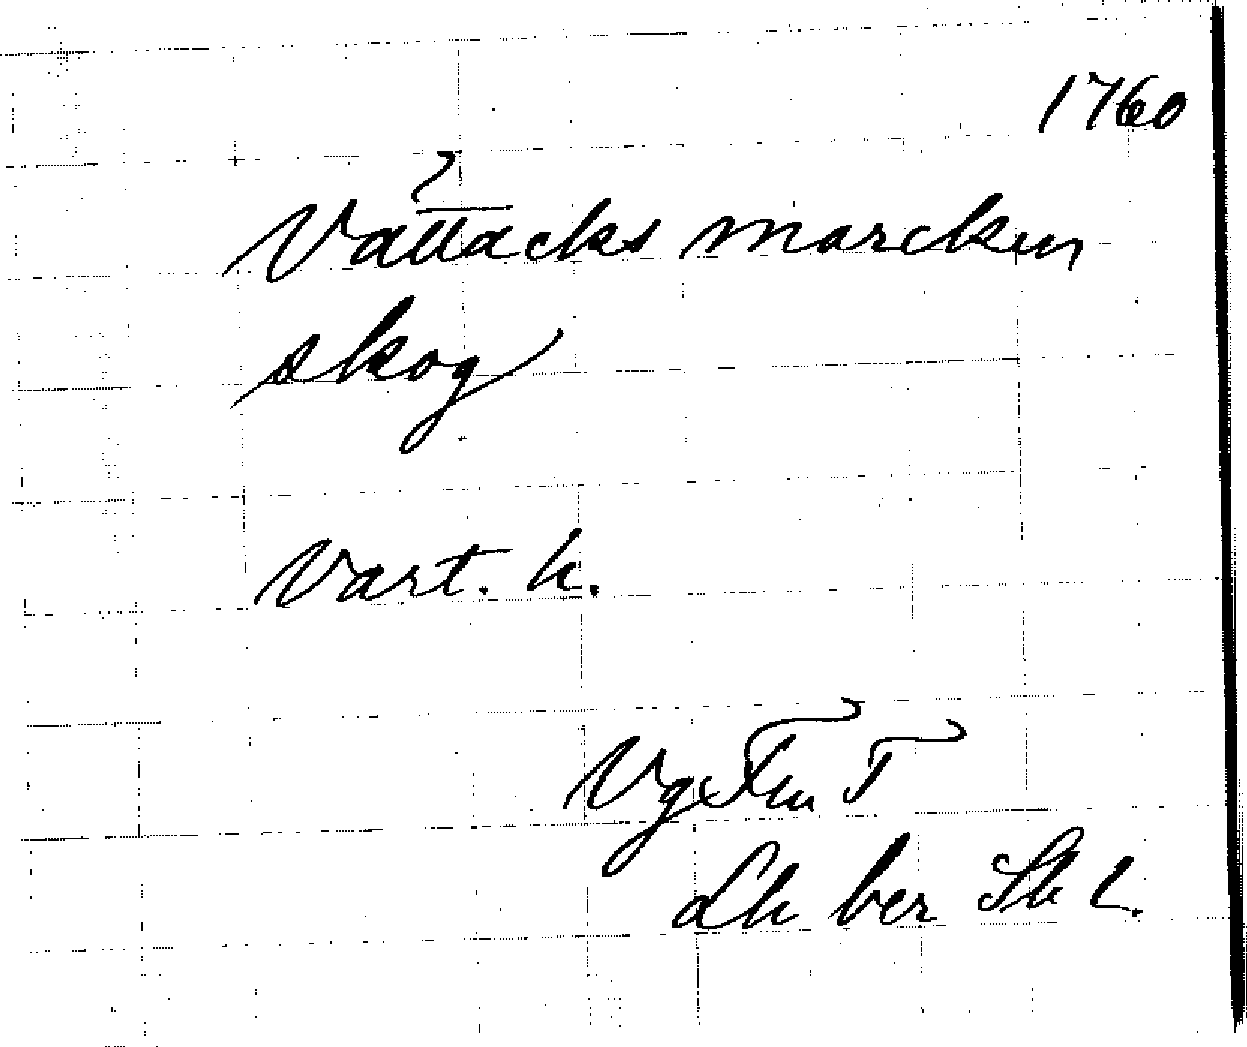 1760
?
Vättacks marcken
skog
Vart. h.
Vg Fm T
Lh ber Sk L.